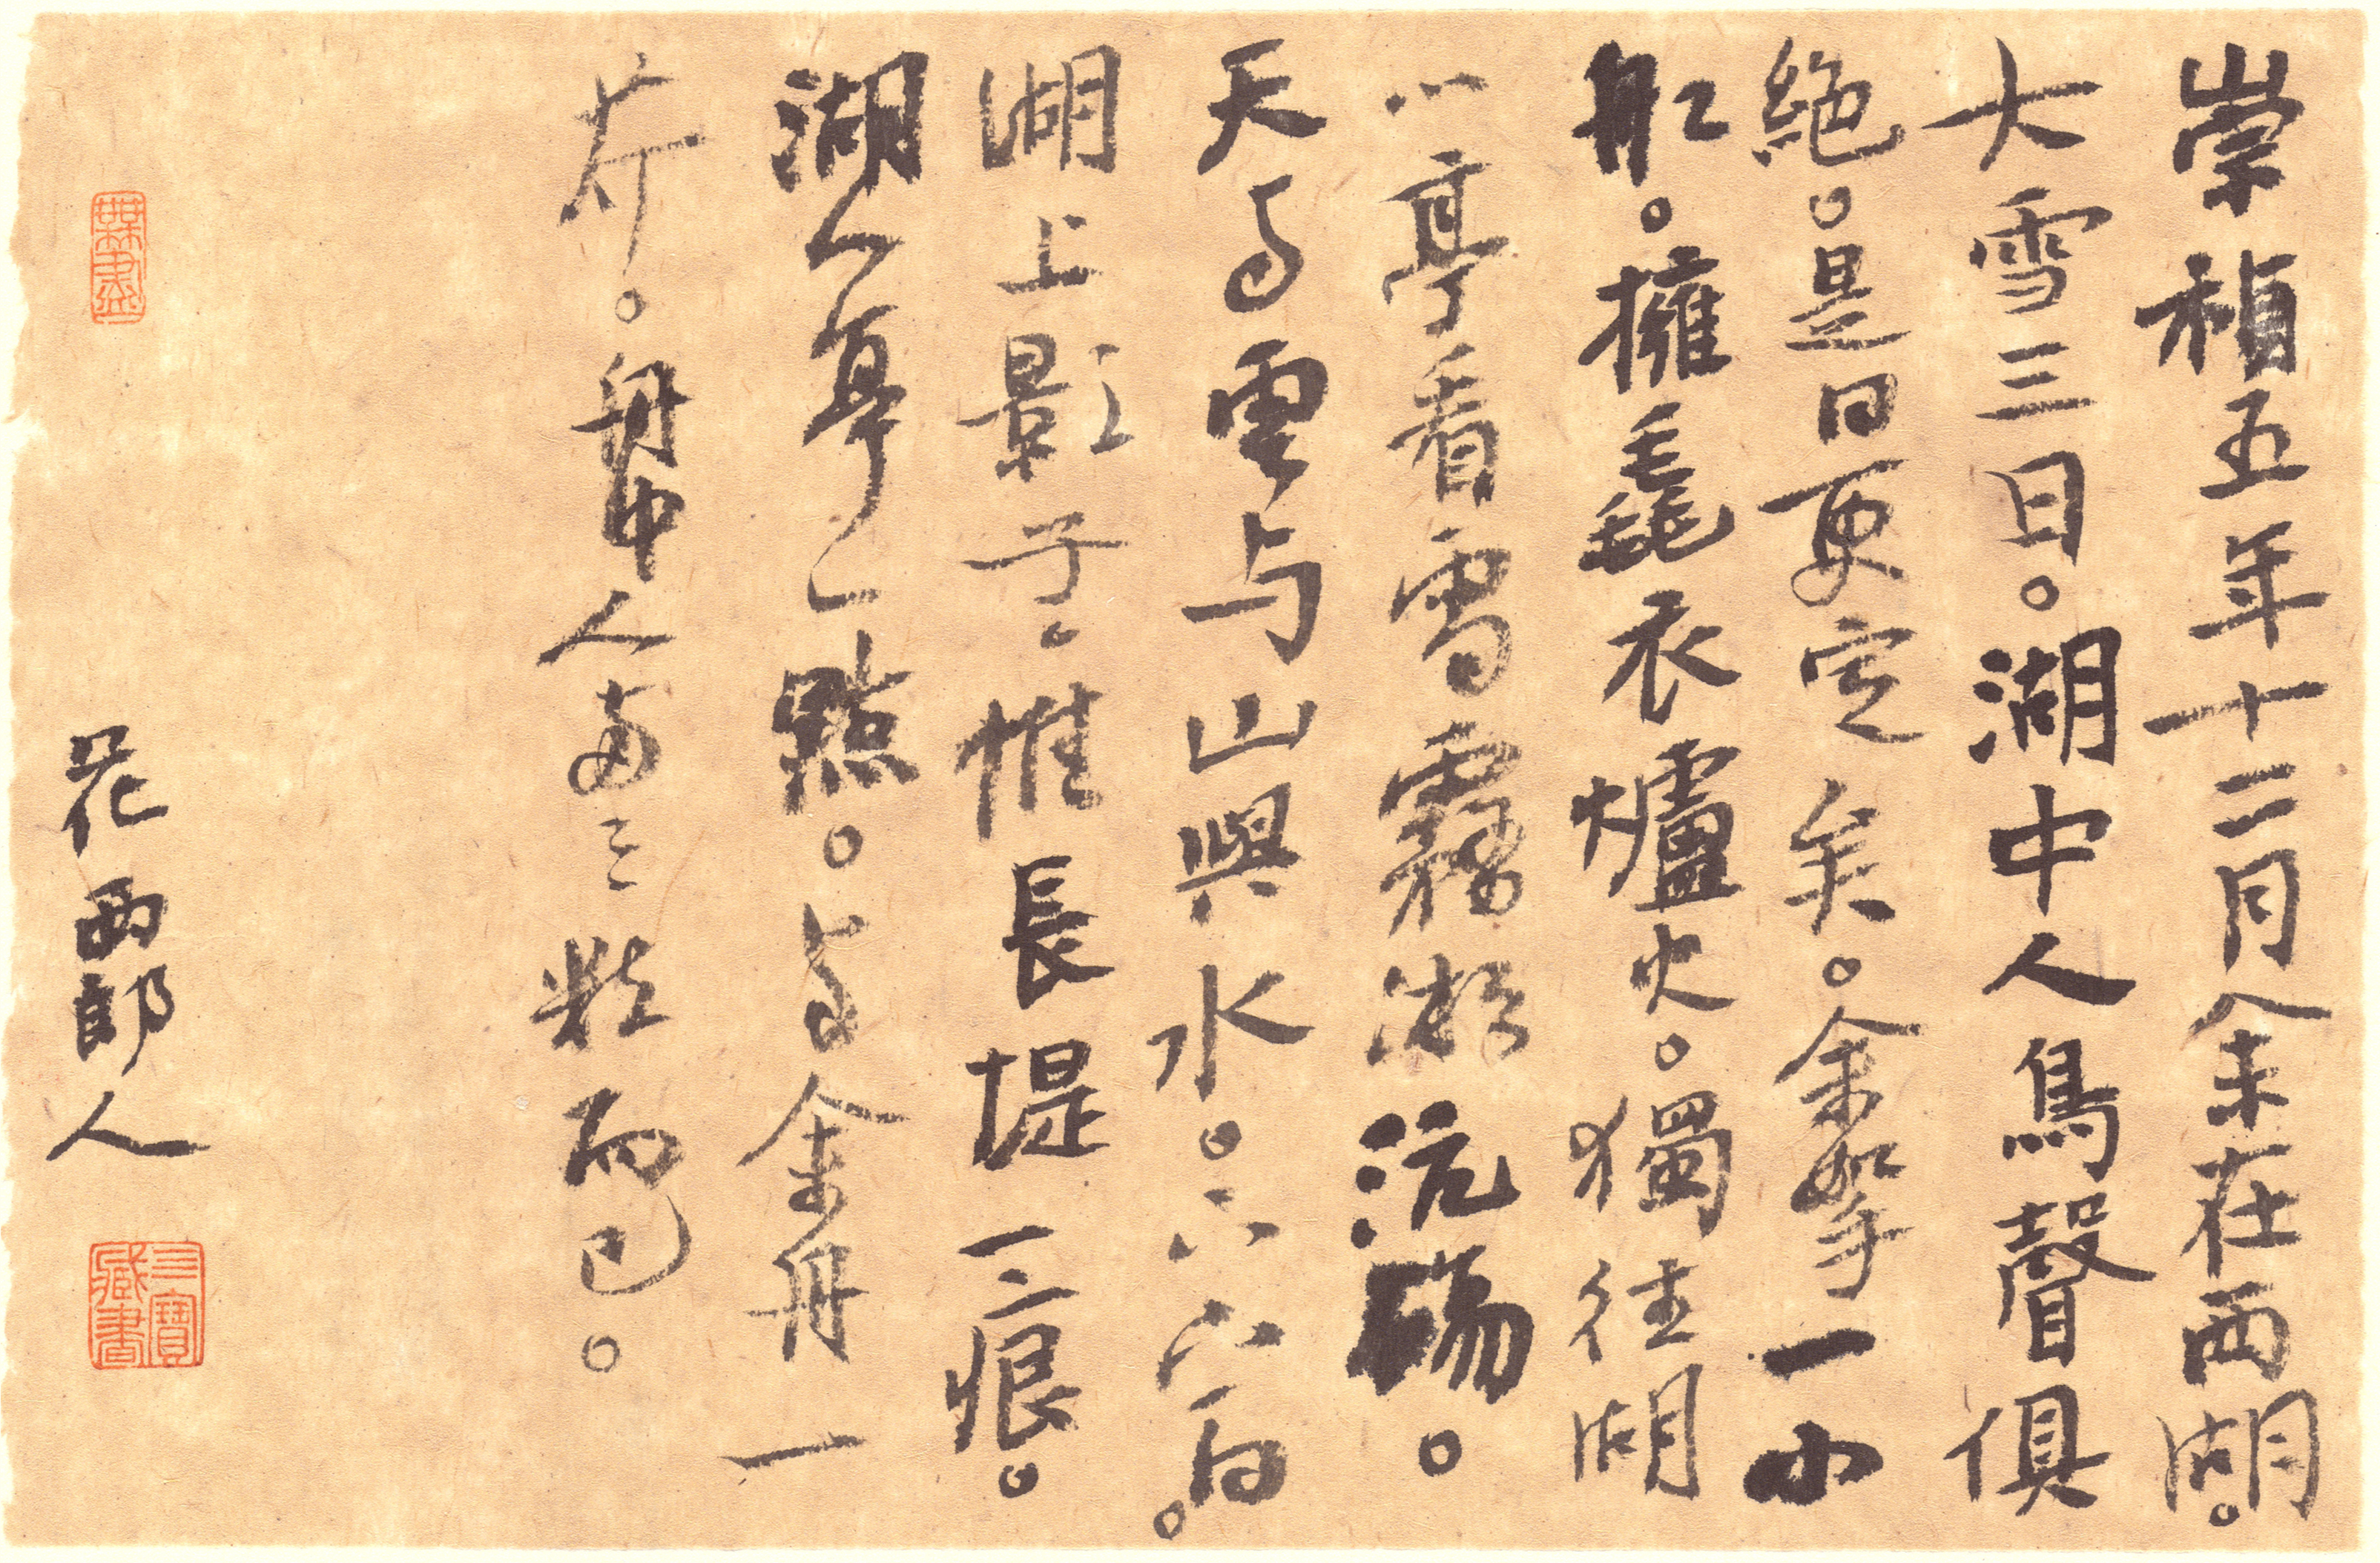 崇禎五年十二月余在西湖。
大雪三日。湖中人鳥聲俱
絕。是日更定矣。余挐一小
舡。擁毳衣爐火。獨往湖
心亭看雪霧淞沆碭。
天与雲与山與水。上下一白。
湖上影子。惟長堤一痕。
湖心亭一點。与余舟一
芥。舟中人兩三粒而已。
花西郎人
三寶藏書